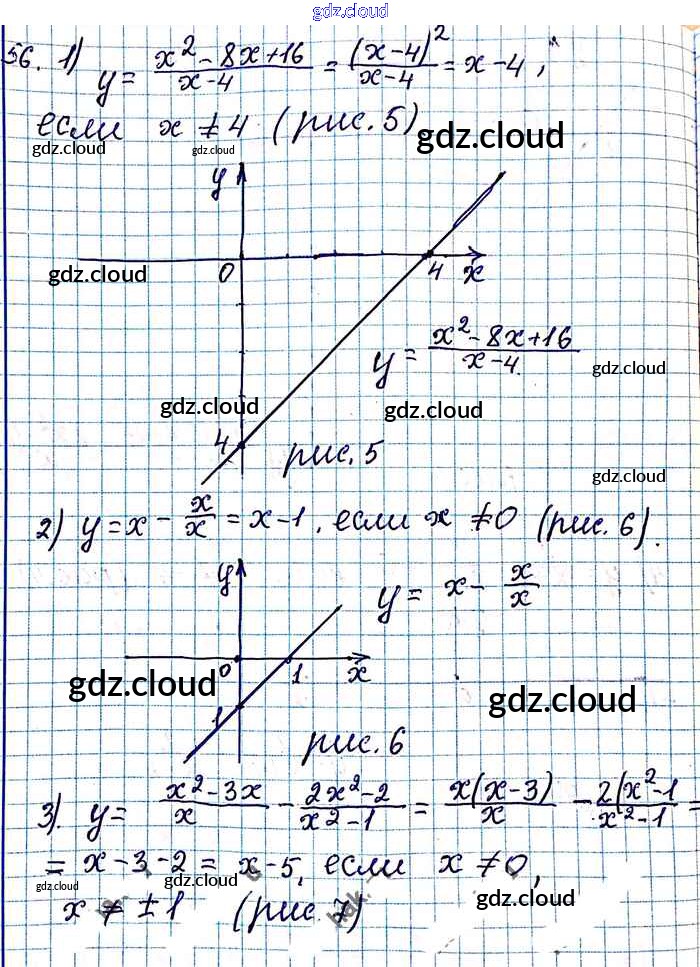 gdz.cloud
56. 1) y = (x² - 8x + 16)/(x - 4) = (x - 4)²/(x - 4) = x - 4,
если x ≠ 4 (рис. 5)
gdz.cloud
gdz.cloud
gdz.cloud
y
0
4
x
gdz.cloud
y = (x² - 8x + 16)/(x - 4).
gdz.cloud
gdz.cloud
gdz.cloud
4
рис. 5
gdz.cloud
2) y = x - x/x = x - 1, если x ≠ 0 (рис. 6).
y
y = x - x/x
0
1
x
gdz.cloud
gdz.cloud
1
рис. 6
3). y = (x² - 3x)/x - (2x² - 2)/(x² - 1) = x(x - 3)/x - 2(x² - 1/(x² - 1) =
= x - 3 - 2 = x - 5, если x ≠ 0,
gdz.cloud
gdz.cloud
x ≠ ±1 (рис. 7)